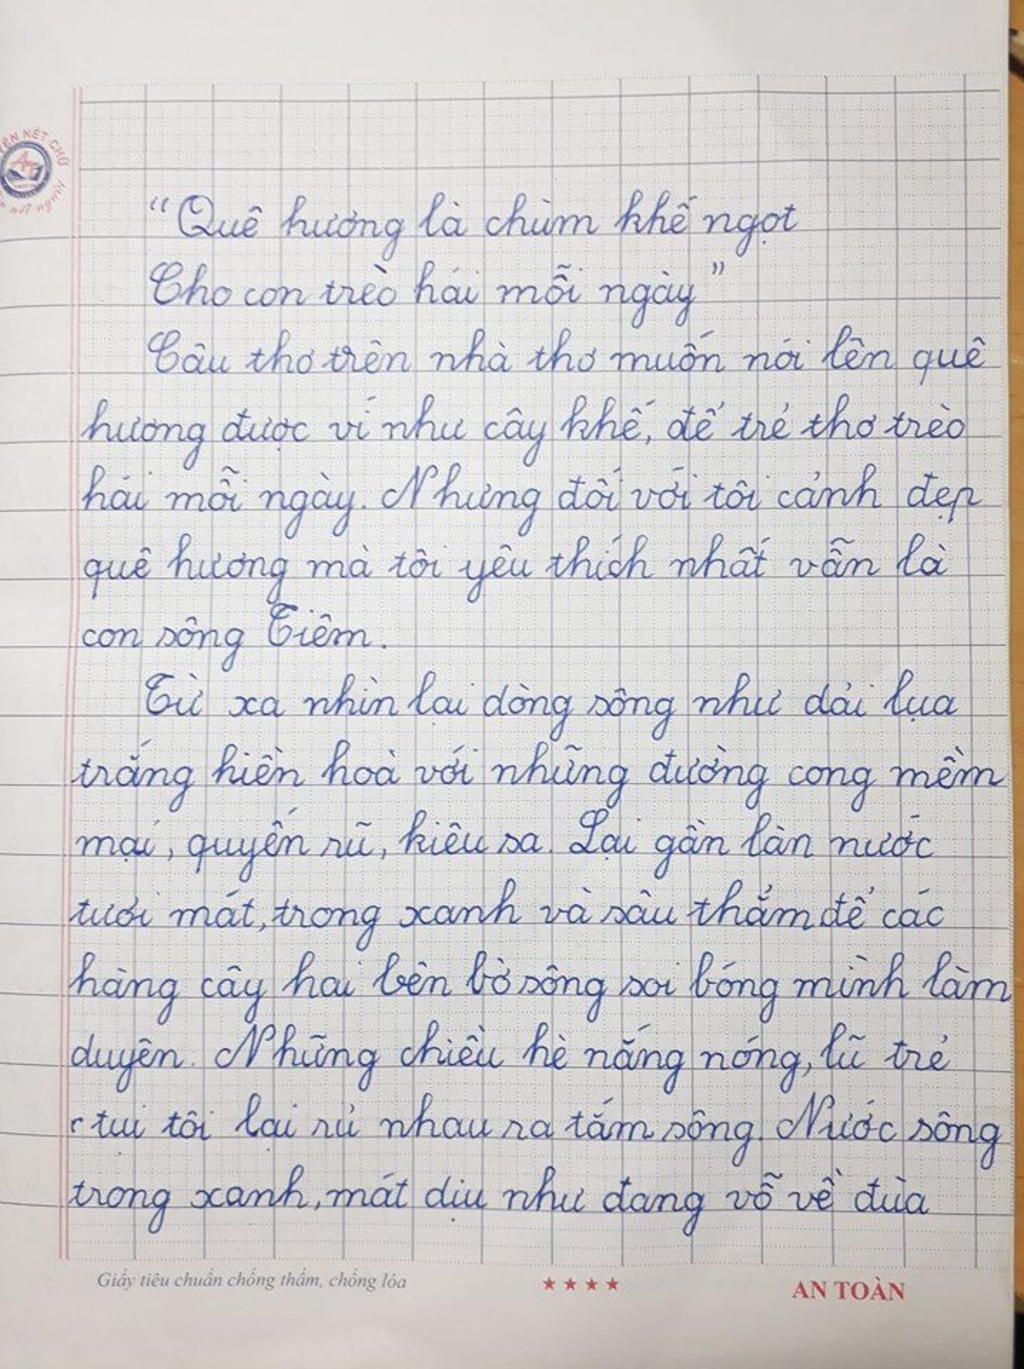 ÈN NÉT CHỮ
nết người
“Quê hương là chùm khế ngọt
Cho con trèo hái mỗi ngày”
Câu thơ trên nhà thơ muốn nói lên quê
hương được ví như cây khế, để trẻ thơ trèo
hái mỗi ngày. Nhưng đối với tôi cảnh đẹp
quê hương mà tôi yêu thích nhất vẫn là
con sông Tiêm.
Từ xa nhìn lại dòng sông như dải lụa
trắng hiền hoà với những đường cong mềm
mại, quyến rũ, kiêu sa. Lại gần làn nước
tươi mát, trong xanh và sâu thẳm để các
hàng cây hai bên bờ sông soi bóng mình làm
duyên. Những chiều hè nắng nóng, lũ trẻ
tui tôi lại rủ nhau ra tắm sông. Nước sông
trong xanh, mát dịu như đang vỗ về đùa
Giấy tiêu chuẩn chống thấm, chống lóa ★★★★ AN TOÀN